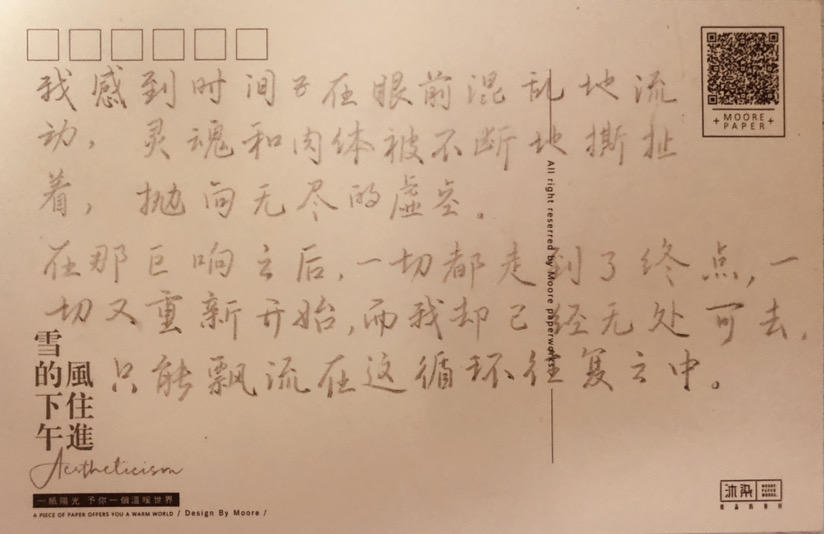 我感到时间子在眼前混乱地流
动，灵魂和肉体被不断地撕扯
着，抛向无尽的虚空。
在那巨响之后，一切都走到了终点，一
切又重新开始，而我却已经无处可去，
只能飘流在这循环往复之中。
MOORE
PAPER
All right reserred by Moore paperworks
風住進
雪的下午
Aestheticism
一紙陽光 予你一個溫暖世界
A PIECE OF PAPER OFFERS YOU A WARM WORLD / Design By Moore /
沐染
MOORE
PAPER
WORKS